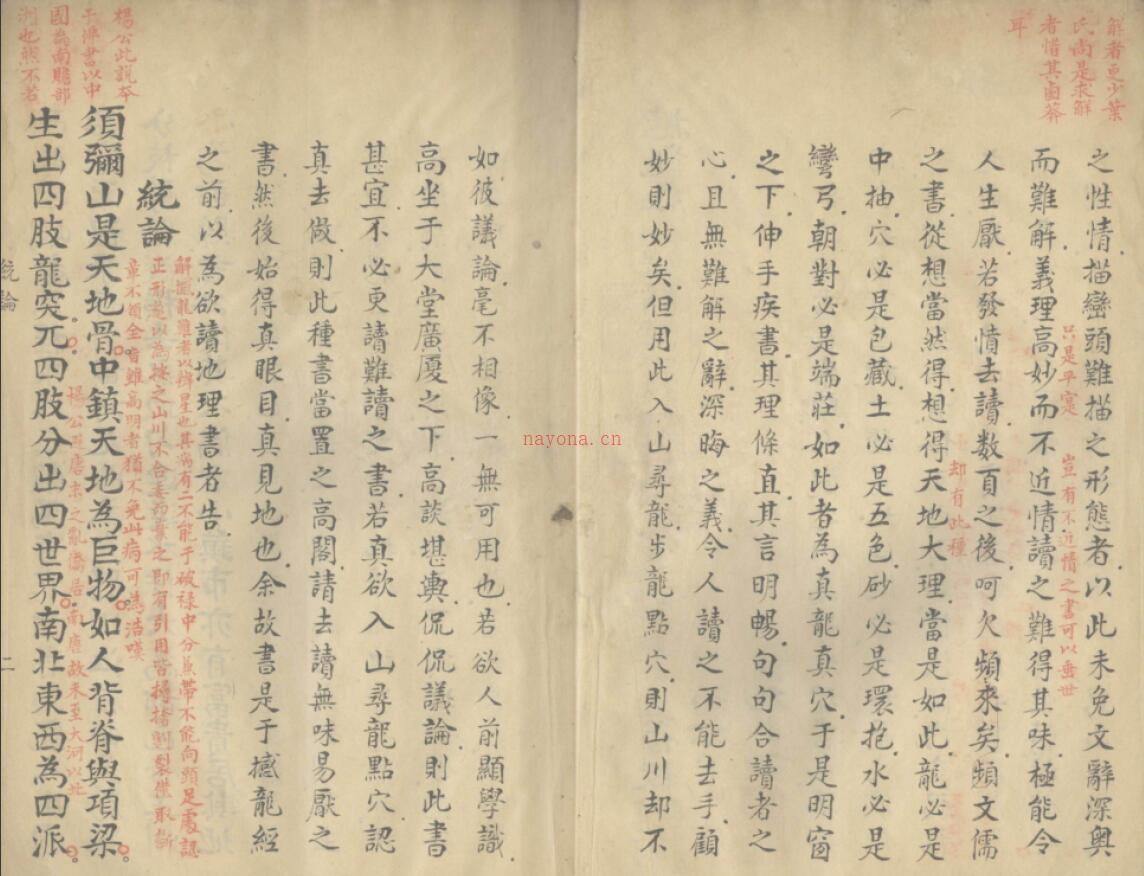 解者更少葉
氏尚是求解
者惜其鹵莽
耳
之性情描巒頭難描之形態者以此未免文辭深奧
只是平寔
豈有不近情之書可以垂世
而難解義理高妙而不近情讀之難得其味極能令
人生厭若發憤去讀數頁之後呵欠頻來矣頻文儒
却有此種
之書從想當然得想得天地大理當是如此龍必是
中抽穴必是包藏土必是五色砂必是環抱水必是
彎弓朝對必是端莊如此者為真龍真穴于是明窗
之下伸手疾書其理條直其言明暢句句合讀者之
心且無難解之辭深晦之義令人讀之不能去手顧
妙則妙矣但用此入山尋龍步龍點穴則山川却不
如彼議論毫不相像一無可用也若欲人前顯學識
高坐于大堂廣廈之下高談堪輿侃侃議論則此書
甚宜不必更讀難讀之書若真欲入山尋龍點穴認
真去做則此種書當置之高閣請去讀無味易厭之
書然後始得真眼目真見地也余故書是于撼龍經
之前以為欲讀地理書者告
統論
解撼龍難者以辨星也其病有二不能于破祿中分兼帶不能向頭足處認
正形
以為
之山川不合
之即有引用皆
割裂
取
章不領全旨雖高明者猶不免此病可為浩嘆
須彌山是天地骨中鎮天地為巨物如人背脊與項梁
楊公
唐末之亂僑居南唐故未至大河以北
生出四肢龍突兀四肢分出四世界南北東西為四派
楊公此說本
于佛書以中
國為南贍部
洲也然不若
統論
二
nayona.cn